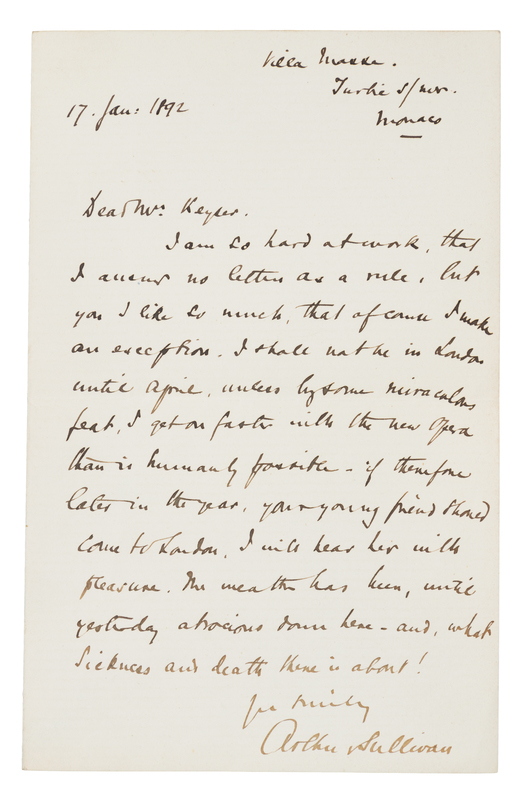 Villa Masse.
Turbie s/mer.
Monaco
17. Jan: 1892
Dear Mrs. Keyser.
I am so hard at work, that
I answer no letters as a rule, but
you I like so much, that of course I make
an exception. I shall not be in London
until April, unless by some miraculous
feat, I get on faster with the new Opera
than is humanly possible – if therefore
later in the year, your young friend should
come to London, I will hear her with
pleasure. The weather has been, until
yesterday atrocious down here – and, what
sickness and death there is about!
Yrs sincerely
Arthur Sullivan